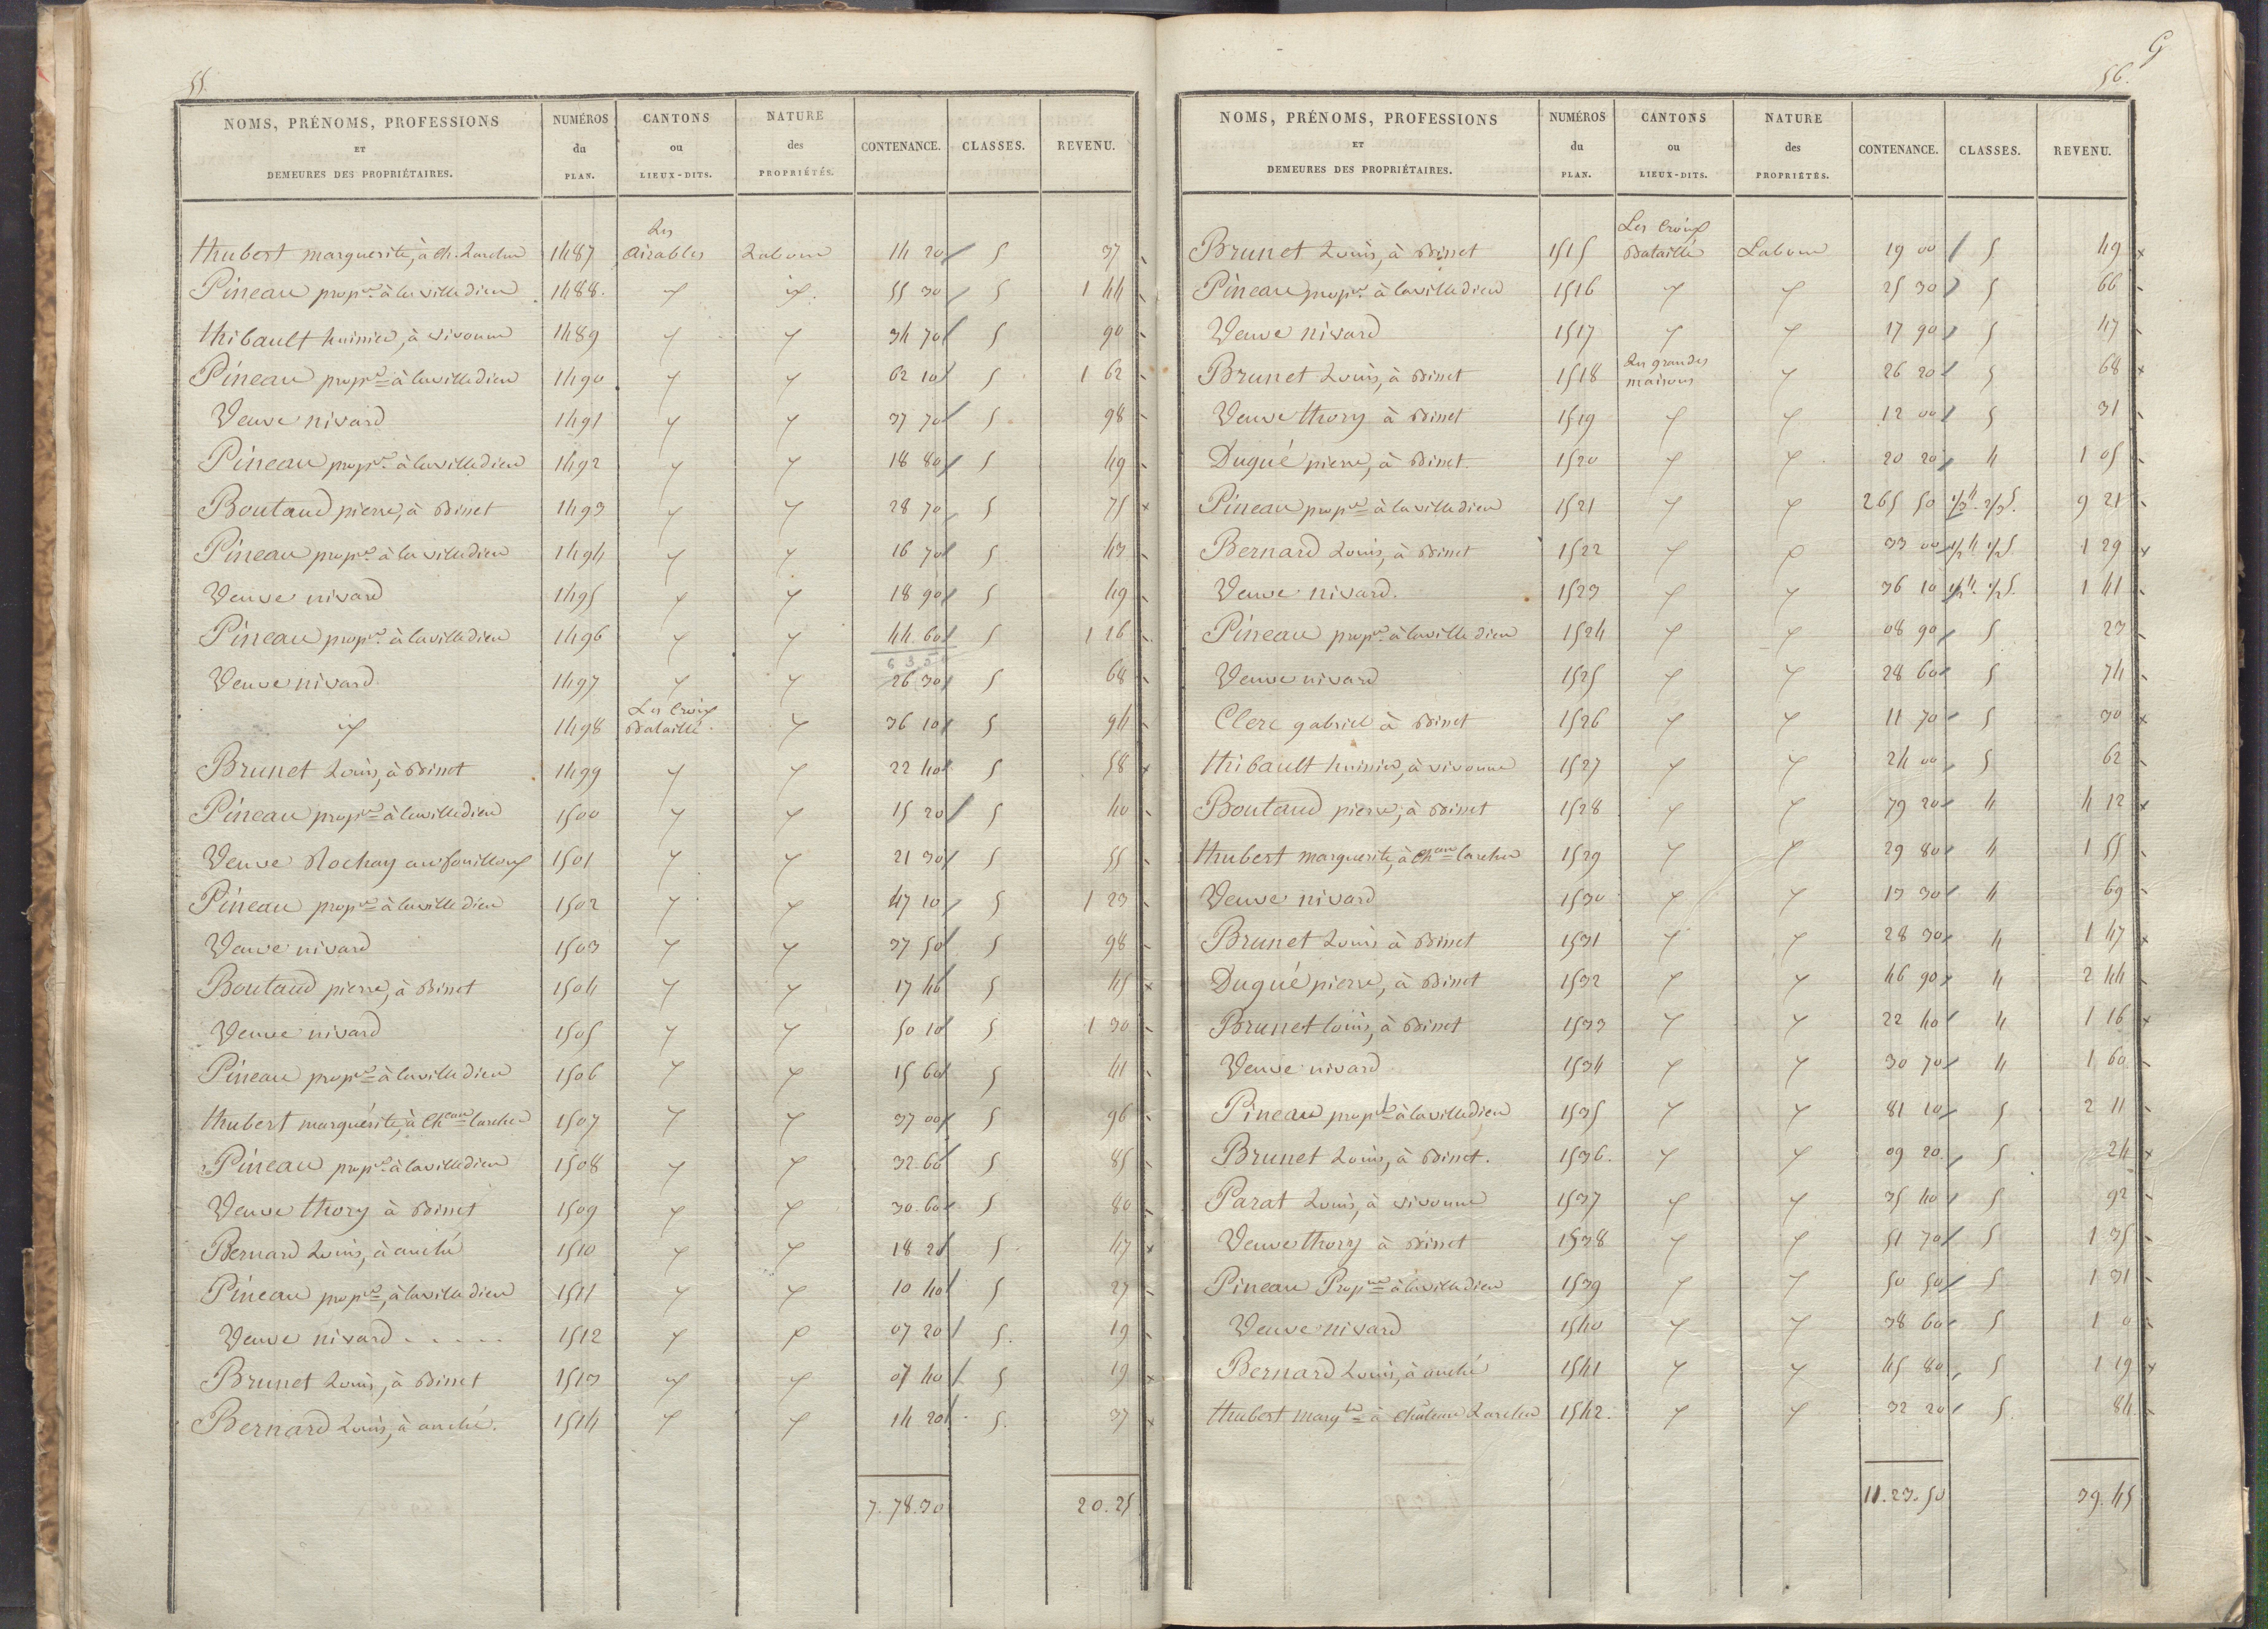 55.
NOMS, PRÉNOMS, PROFESSIONS ET DEMEURES DES PROPRIÉTAIRES. | NUMÉROS du PLAN. | CANTONS ou LIEUX-DITS. | NATURE des PROPRIÉTÉS. | CONTENANCE. | CLASSES. | REVENU.
Hubert marguerite, à Ch. Larcher 1487 Les airables Labour 14 20 5 37
Pineau propre à la villedieu 1488 id. 55 30 5 1 44
thibault huissier, à vivonne 1489 " " 34 70 5 90
Pineau propre à la villedieu 1490 " " 62 10 5 1 62
Veuve nivard 1491 " " 37 70 5 98
Pineau propre à la villedieu 1492 " " 18 80 5 49
Boutaud pierre, à Binet 1493 " " 28 70 5 75
Pineau propre à la villedieu 1494 " " 16 70 5 43
Veuve nivard 1495 " " 18 90 5 49
Pineau propre à la villedieu 1496 " " 44.60 5 1 16
635
Veuve nivard 1497 " " 26 30 5 68
id 1498 Les Croix Bataillé " 36 10 5 94
Brunet Louis, à Binet 1499 " " 22 40 5 58
Pineau propre à la villedieu 1500 " " 15 20 5 40
Veuve Rochay au fouilloux 1501 " " 21 30 5 55
Pineau propre à la villedieu 1502 " " 47 10 5 1 23
Veuve nivard 1503 " " 37 50 5 98
Boutaud pierre, à Binet 1504 " " 17 46 5 45
Veuve nivard 1505 " " 50 10 5 1 30
Pineau propre à la villedieu 1506 " " 15 60 5 41
Hubert marguerite, à Cheau larcher 1507 " " 37 00 5 96
Pineau propre à la villedieu 1508 " " 32.60 5 85
Veuve thory à Binet 1509 " " 30.60 5 80
Bernard Louis, à anché 1510 " " 18 20 5 47
Pineau propre, à la villedieu 1511 " " 10 40 5 27
Veuve nivard . . . . . 1512 " " 07 20 5. 19
Brunet Louis, à Binet 1513 " " 07 40 5 19
Bernard Louis, à anché. 1514 " " 14 20 5. 37
7.78.30 20.25
G
56.
NOMS, PRÉNOMS, PROFESSIONS ET DEMEURES DES PROPRIÉTAIRES. | NUMÉROS du PLAN. | CANTONS ou LIEUX-DITS. | NATURE des PROPRIÉTÉS. | CONTENANCE. | CLASSES. | REVENU.
Brunet Louis, à Binet 1515 Les Croix Bataillé Labour 19 00 5 49
Pineau propre à la villedieu 1516 " " 25 30 5 66
Veuve nivard 1517 " " 17 90 5 47
Brunet Louis, à Binet 1518 Les grandes maisons " 26 20 5 68
Veuve thory à Binet 1519 " " 12 00 5 31
Dugué pierre, à Binet. 1520 " " 20 20 4 1 05
Pineau propre à la villedieu 1521 " " 265 50 1/3 4. 2/3 5. 9 21
Bernard Louis, à Binet 1522 " " 33 00 1/2 4 1/2 5. 1 29
Veuve nivard. 1523 " " 36 10 1/2 4. 1/2 5. 1 41
Pineau propre à la villedieu 1524 " " 08 90 5 23
Veuve nivard 1525 " " 28 60 5 74
Clerc gabriel à Binet 1526 " " 11 70 5 30
thibault huissier, à vivonne 1527 " " 24 00 5 62
Boutaud pierre, à Binet 1528 " " 79 20 4 4 12
Hubert marguerite, à Cheau larcher 1529 " " 29 80 4 1 55
Veuve nivard 1530 " " 13 30 4 69
Brunet Louis à Binet 1531 " " 28 30 4 1 47
Dugué pierre, à Binet 1532 " " 46 90 4 2 44
Brunet louis, à Binet 1533 " " 22 40 4 1 16
Veuve nivard 1534 " " 30 70 4 1 60
Pineau propre à la villedieu 1535 " " 81 10 5 2 11
Brunet Louis, à Binet. 1536. " " 09 20 5 24
Parat Louis, à vivonne 1537 " " 35 40 5 92
Veuve thory à Binet 1538 " " 51 70 5 1 35
Pineau Propre à la villedieu 1539 " " 50 50 5 1 31
Veuve nivard 1540 " " 38 60 5 1 0
Bernard Louis, à anché 1541 " " 45 80 5 1 19
Hubert margte à Château Larcher 1542. " " 32 20 5. 84
11.23.50 39.45